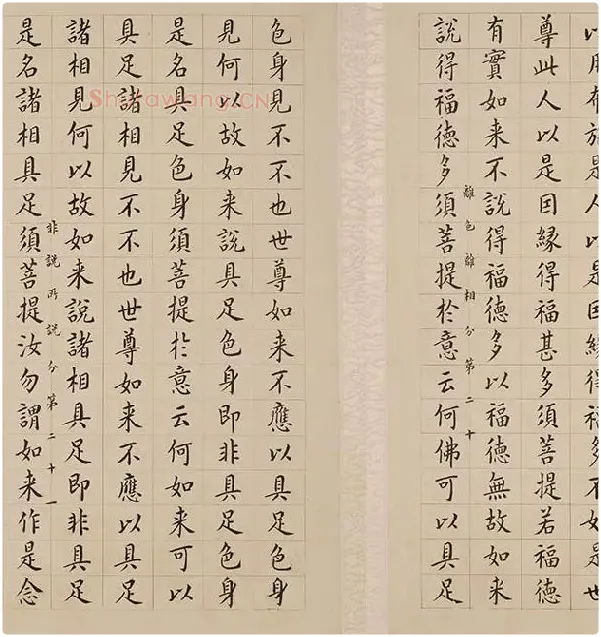 以用布施是人以是因緣得福多不如是世
尊此人以是因緣得福甚多須菩提若福德
有實如来不說得福德多以福德無故如来
離色離相分第二十
說得福德多須菩提於意云何佛可以具足
色身見不不也世尊如来不應以具足色身
見何以故如来說具足色身即非具足色身
是名具足色身須菩提於意云何如来可以
具足諸相見不不也世尊如来不應以具足
諸相見何以故如来說諸相具足即非具足
非說所說分第二十一
是名諸相具足須菩提汝勿謂如来作是念
Shufawang.CN